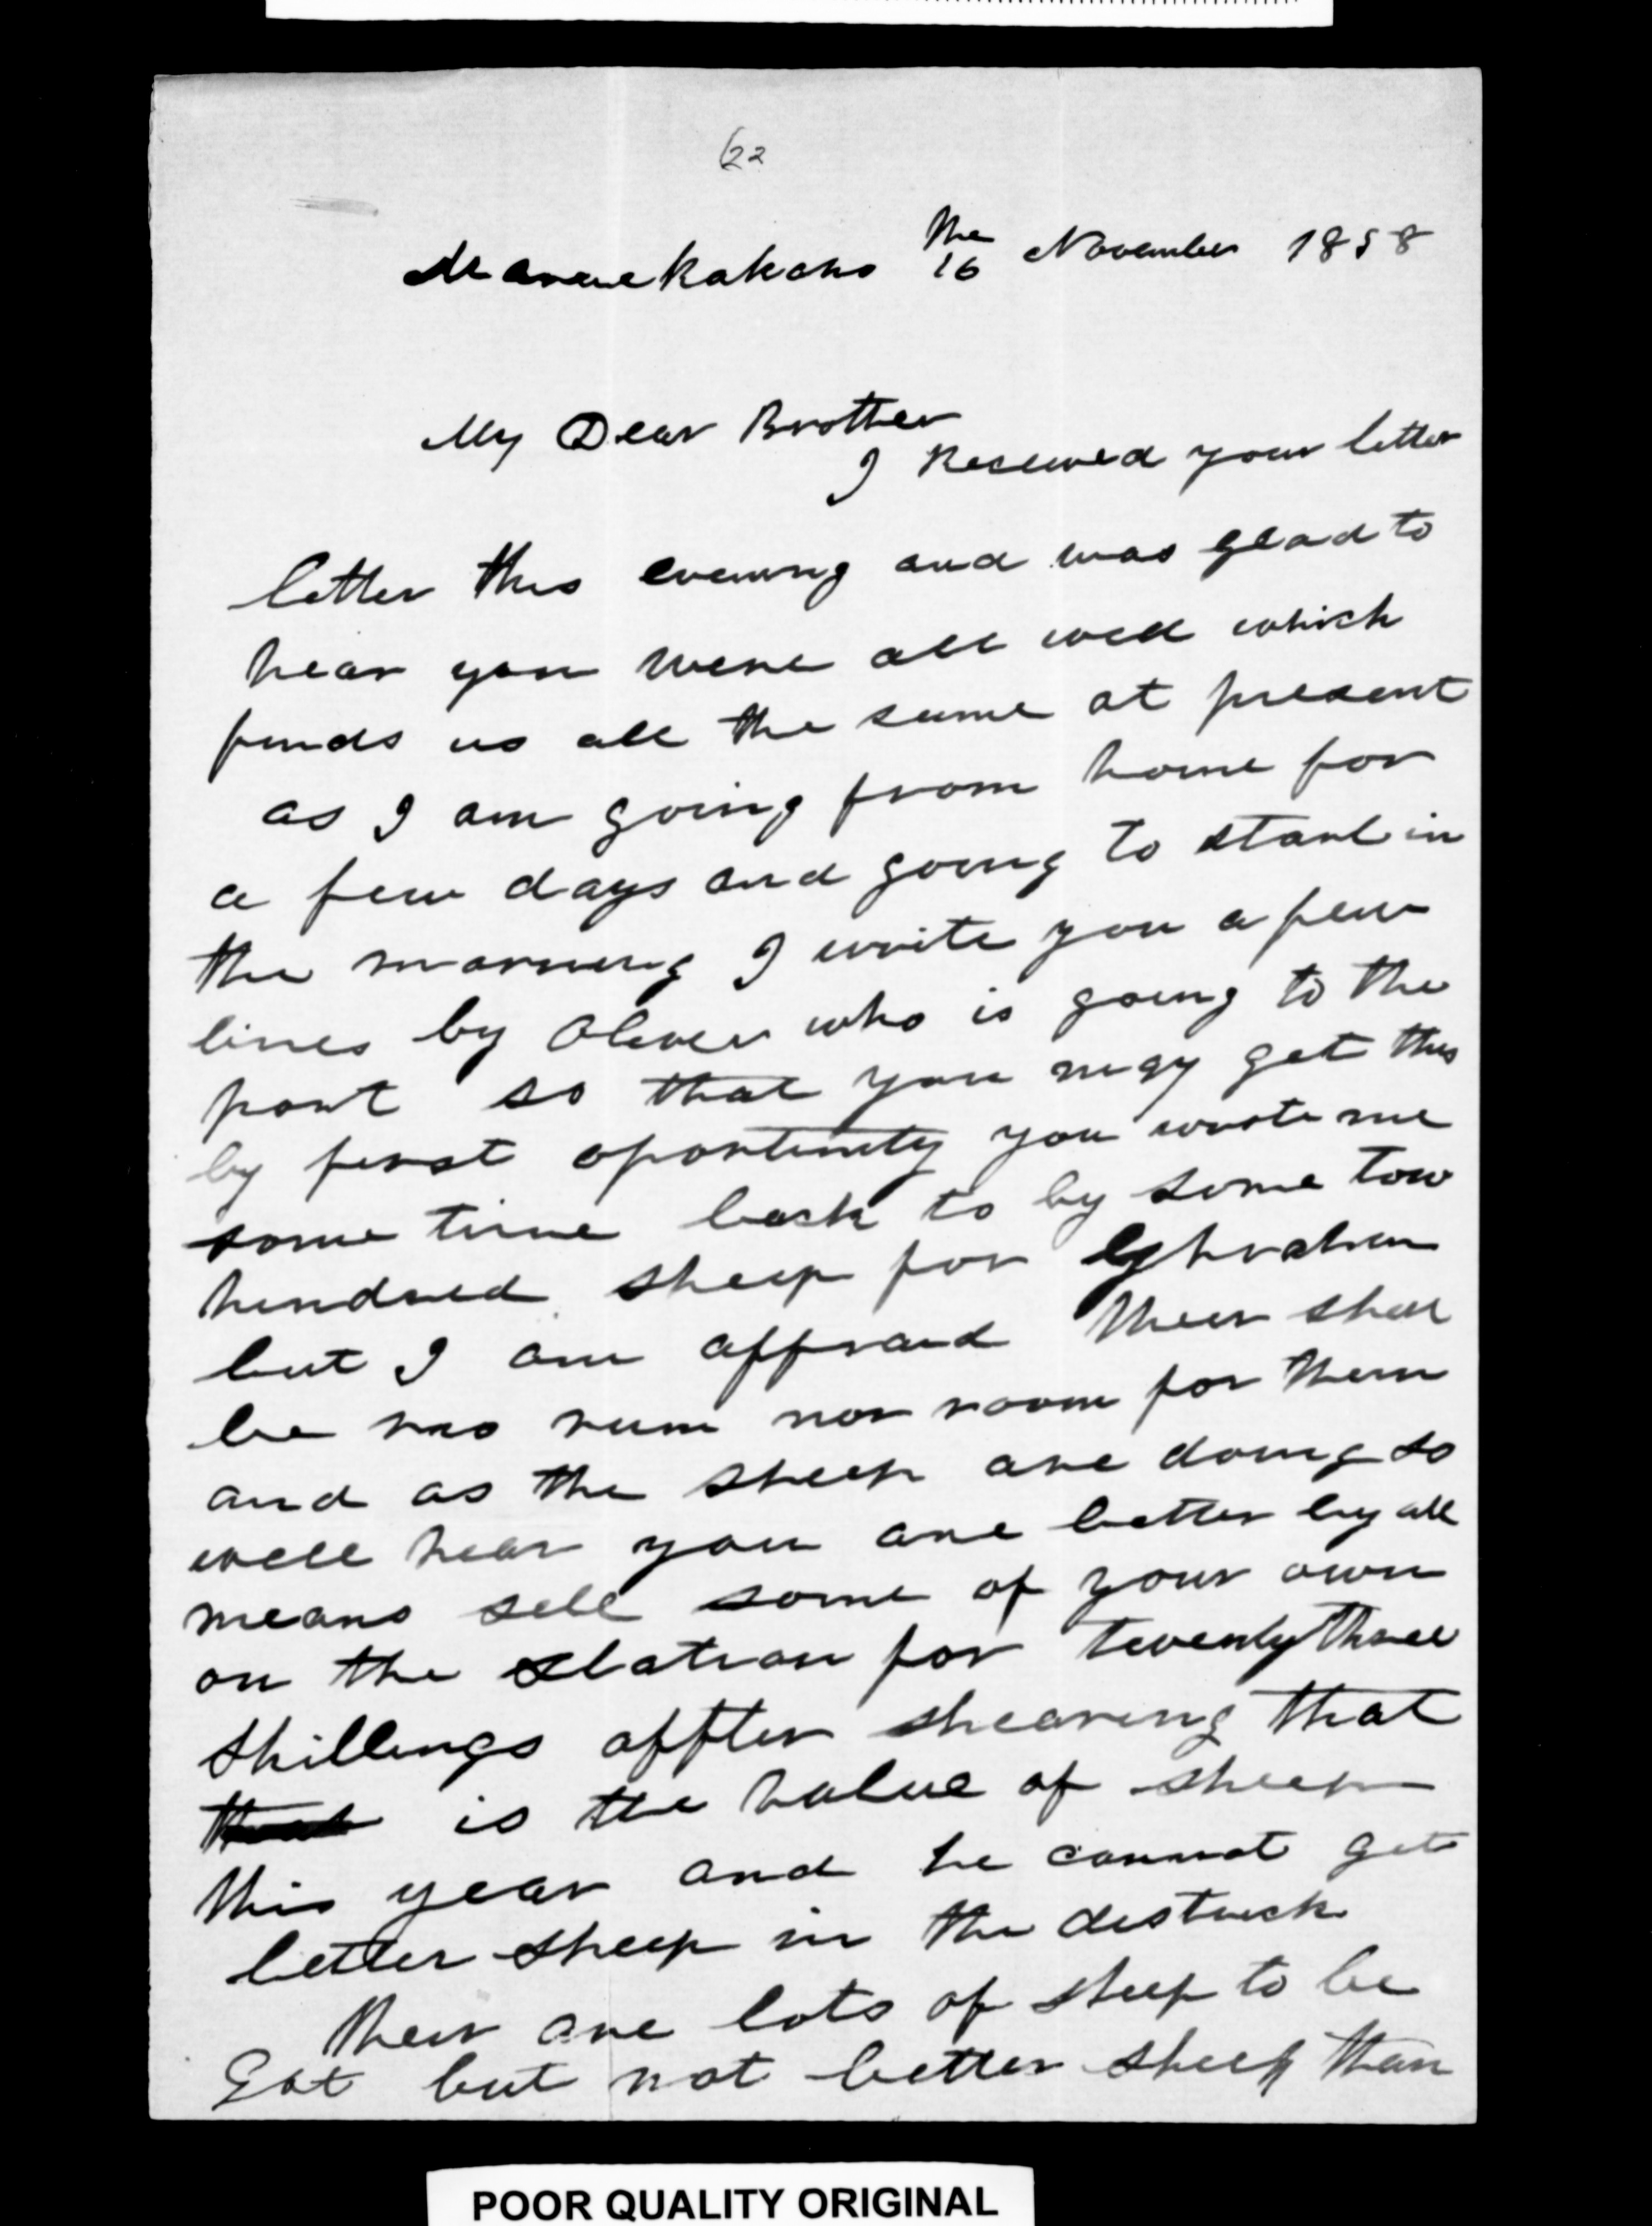 622
Maraekakaho the 16 November 1858
My Dear Brother
I Reseived your letter
letter this evening and was glad to
hear you were all well which
finds us all the same at present
as I am going from home for
a few days and going to start in
the morning I write you a few
lines by Olever who is going to the
port so that you may get this
by first oportunity you wrote me
some time back to by some tow
hundred sheep for
but I am affraid their shall
be no rum nor room for them
and as the sheep are doing so
well hear you are better by all
means sell some of your own
on the station for twenty three
shillings affter shearing that
that is the value of sheep
this year and he cannot get
better sheep in the destrick
their are lots of sheep to be
Got but not better sheep than
POOR QUALITY ORIGINAL